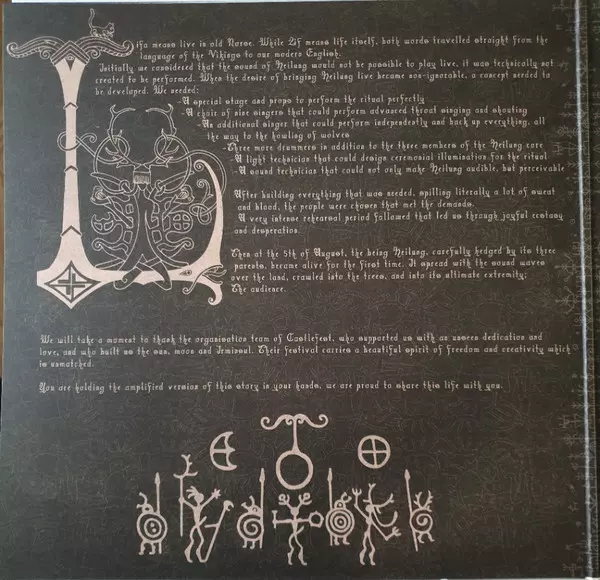 Lifa means live in old Norse. While Lif means life itself, both words travelled straight from the
language of the Vikings to our modern English.
Initially we considered that the sound of Heilung would not be possible to play live, it was technically not
created to be performed. When the desire of bringing Heilung live became non-ignorable, a concept needed to
be developed. We needed:
-A special stage and props to perform the ritual perfectly
-A choir of nine singers that could perform advanced throat singing and shouting
-An additional singer that could perform independently and back up everything, all
the way to the howling of wolves
-Three more drummers in addition to the three members of the Heilung core
-A light technician that could design ceremonial illumination for the ritual
-A sound technician that could not only make Heilung audible, but perceivable
After building everything that was needed, spilling literally a lot of sweat
and blood, the people were chosen that met the demands.
A very intense rehearsal period followed that led us through joyful ecstasy
and desperation.
Then at the 5th of August, the being Heilung, carefully hedged by its three
parents, became alive for the first time. It spread with the sound waves
over the land, crawled into the trees, and into its ultimate extremity:
The audience.
We will take a moment to thank the organisation team of Castlefest, who supported us with an unseen dedication and
love, and who built us the sun, moon and Irminsul. Their festival carries a beautiful spirit of freedom and creativity which
is unmatched.
You are holding the amplified version of this story in your hands, we are proud to share this life with you.